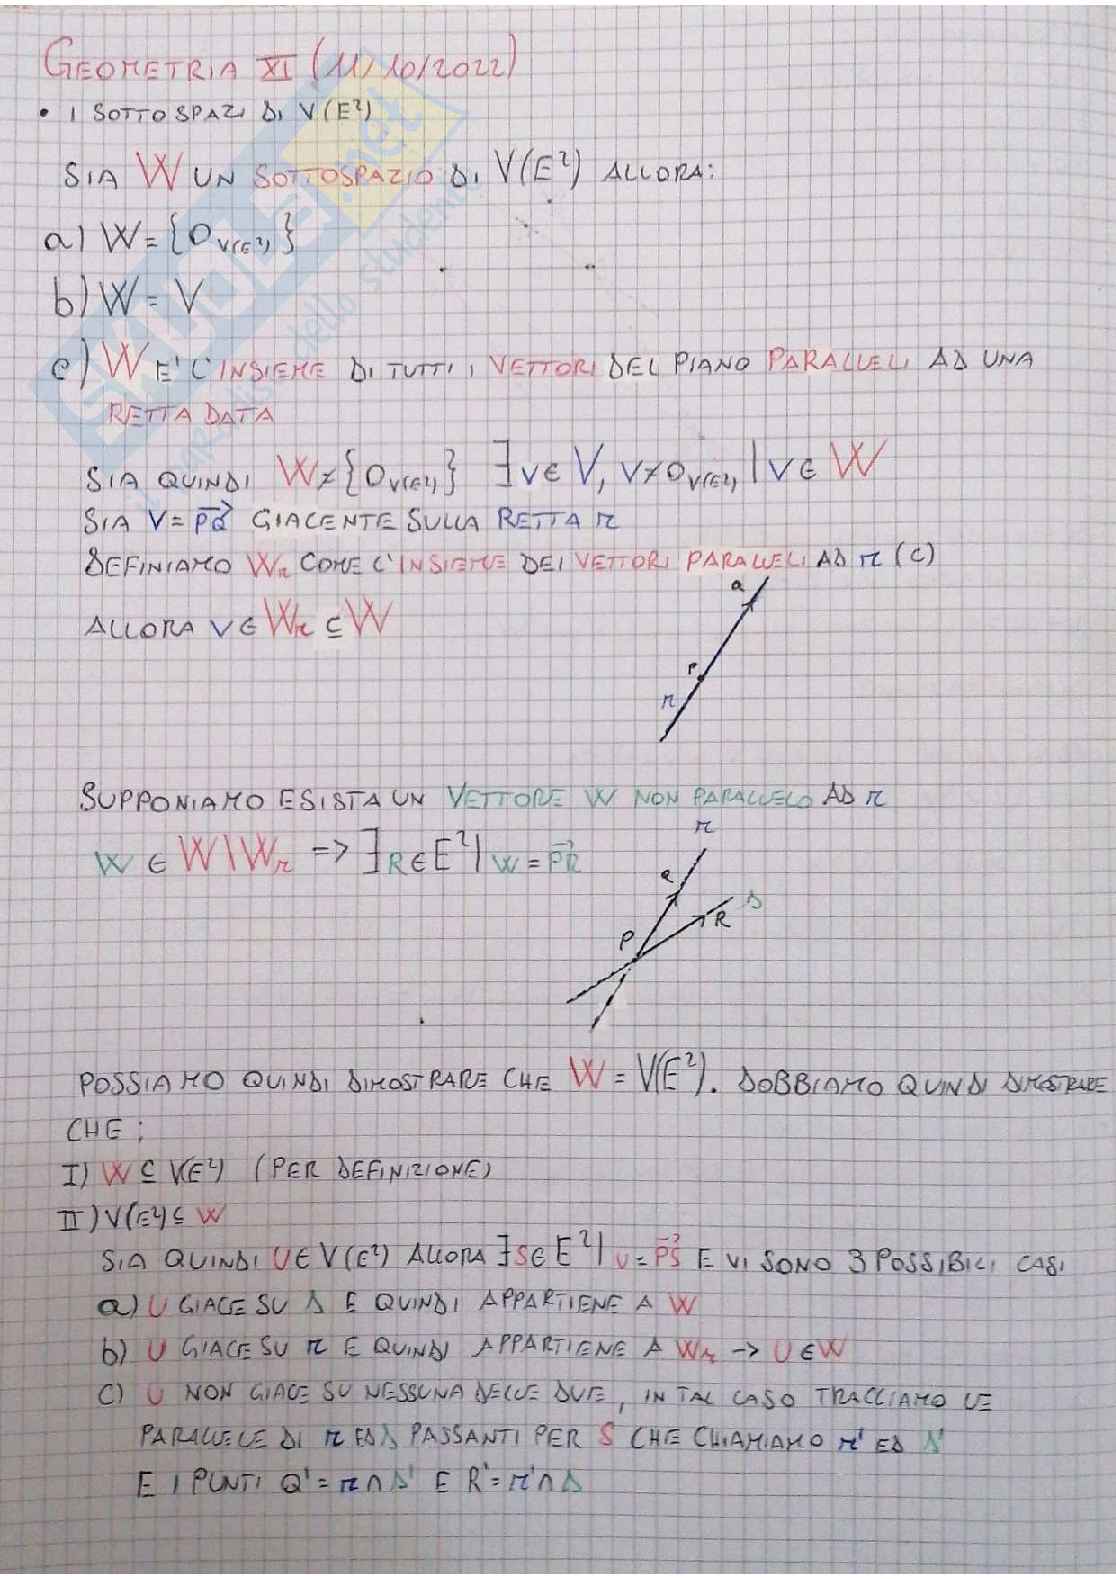 GEOMETRIA XI (11/10/2022)
• I SOTTOSPAZI DI V(E²)
SIA W UN SOTTOSPAZIO DI V(E²) ALLORA:
a) W = {0_V(E²)}
b) W = V
c) W E' L'INSIEME DI TUTTI I VETTORI DEL PIANO PARALLELI AD UNA
RETTA DATA
SIA QUINDI W ≠ {0_V(E²)} ∃ v ∈ V, v ≠ 0_V(E²) | v ∈ W
SIA V = PQ⃗ GIACENTE SULLA RETTA r
DEFINIAMO Wr COME L'INSIEME DEI VETTORI PARALLELI AD r (C)
ALLORA V ∈ Wr ⊆ W
Q
P
r
SUPPONIAMO ESISTA UN VETTORE W NON PARALLELO AD r
W ∈ W \ Wr -> ∃ R ∈ E² | W = PR⃗
r
Q
s
R
P
POSSIAMO QUINDI DIMOSTRARE CHE W = V(E²). DOBBIAMO QUINDI DIMOSTRARE
CHE:
I) W ⊆ V(E²) (PER DEFINIZIONE)
II) V(E²) ⊆ W
SIA QUINDI U ∈ V(E²) ALLORA ∃ S ∈ E² | U = PS⃗ E VI SONO 3 POSSIBILI CASI
a) U GIACE SU s E QUINDI APPARTIENE A W
b) U GIACE SU r E QUINDI APPARTIENE A Wr -> U ∈ W
C) U NON GIACE SU NESSUNA DELLE DUE, IN TAL CASO TRACCIAMO LE
PARALLELE DI r ED s PASSANTI PER S CHE CHIAMIAMO r' ED s'
E I PUNTI Q' = r ∩ s' E R' = r' ∩ s
SKUOLA.net